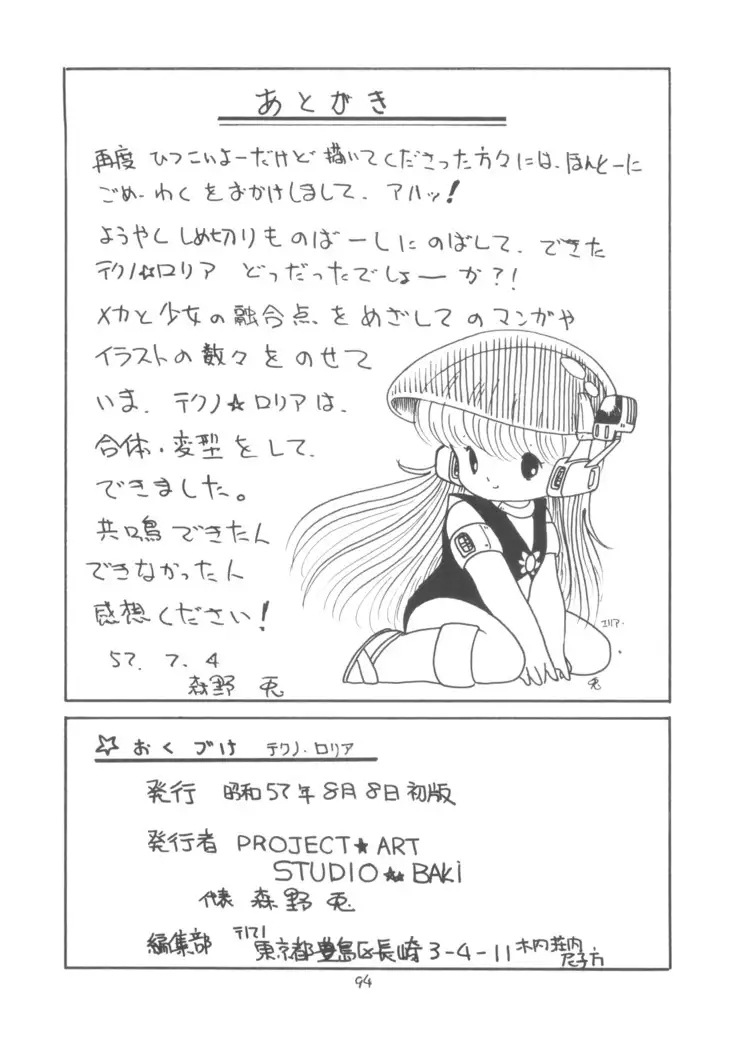 あとがき
再度 ひつこいよーだけど 描いてくださった方々には、ほんとーに
ごめーわくをおかけしまして、アハッ!
ようやくしめ切りものばーしにのばして、できた
テクノ☆ロリア どっだったでしょーか?!
メカと少女の融合点をめざしてのマンガや
イラストの数々をのせて
いま、テクノ☆ロリアは、
合体・変型をして、
できました。
共鳴できたん
できなかったん
感想ください!
57.7.4
森野 兎
ユリア.
兎
☆ おくづけ テクノ・ロリア
発行 昭和57年8月8日初版
発行者 PROJECT★ART
STUDIO★★BAKI
代表 森野 兎
編集部 〒171
東京都豊島区長崎3-4-11 木内荘内
尼子方
94